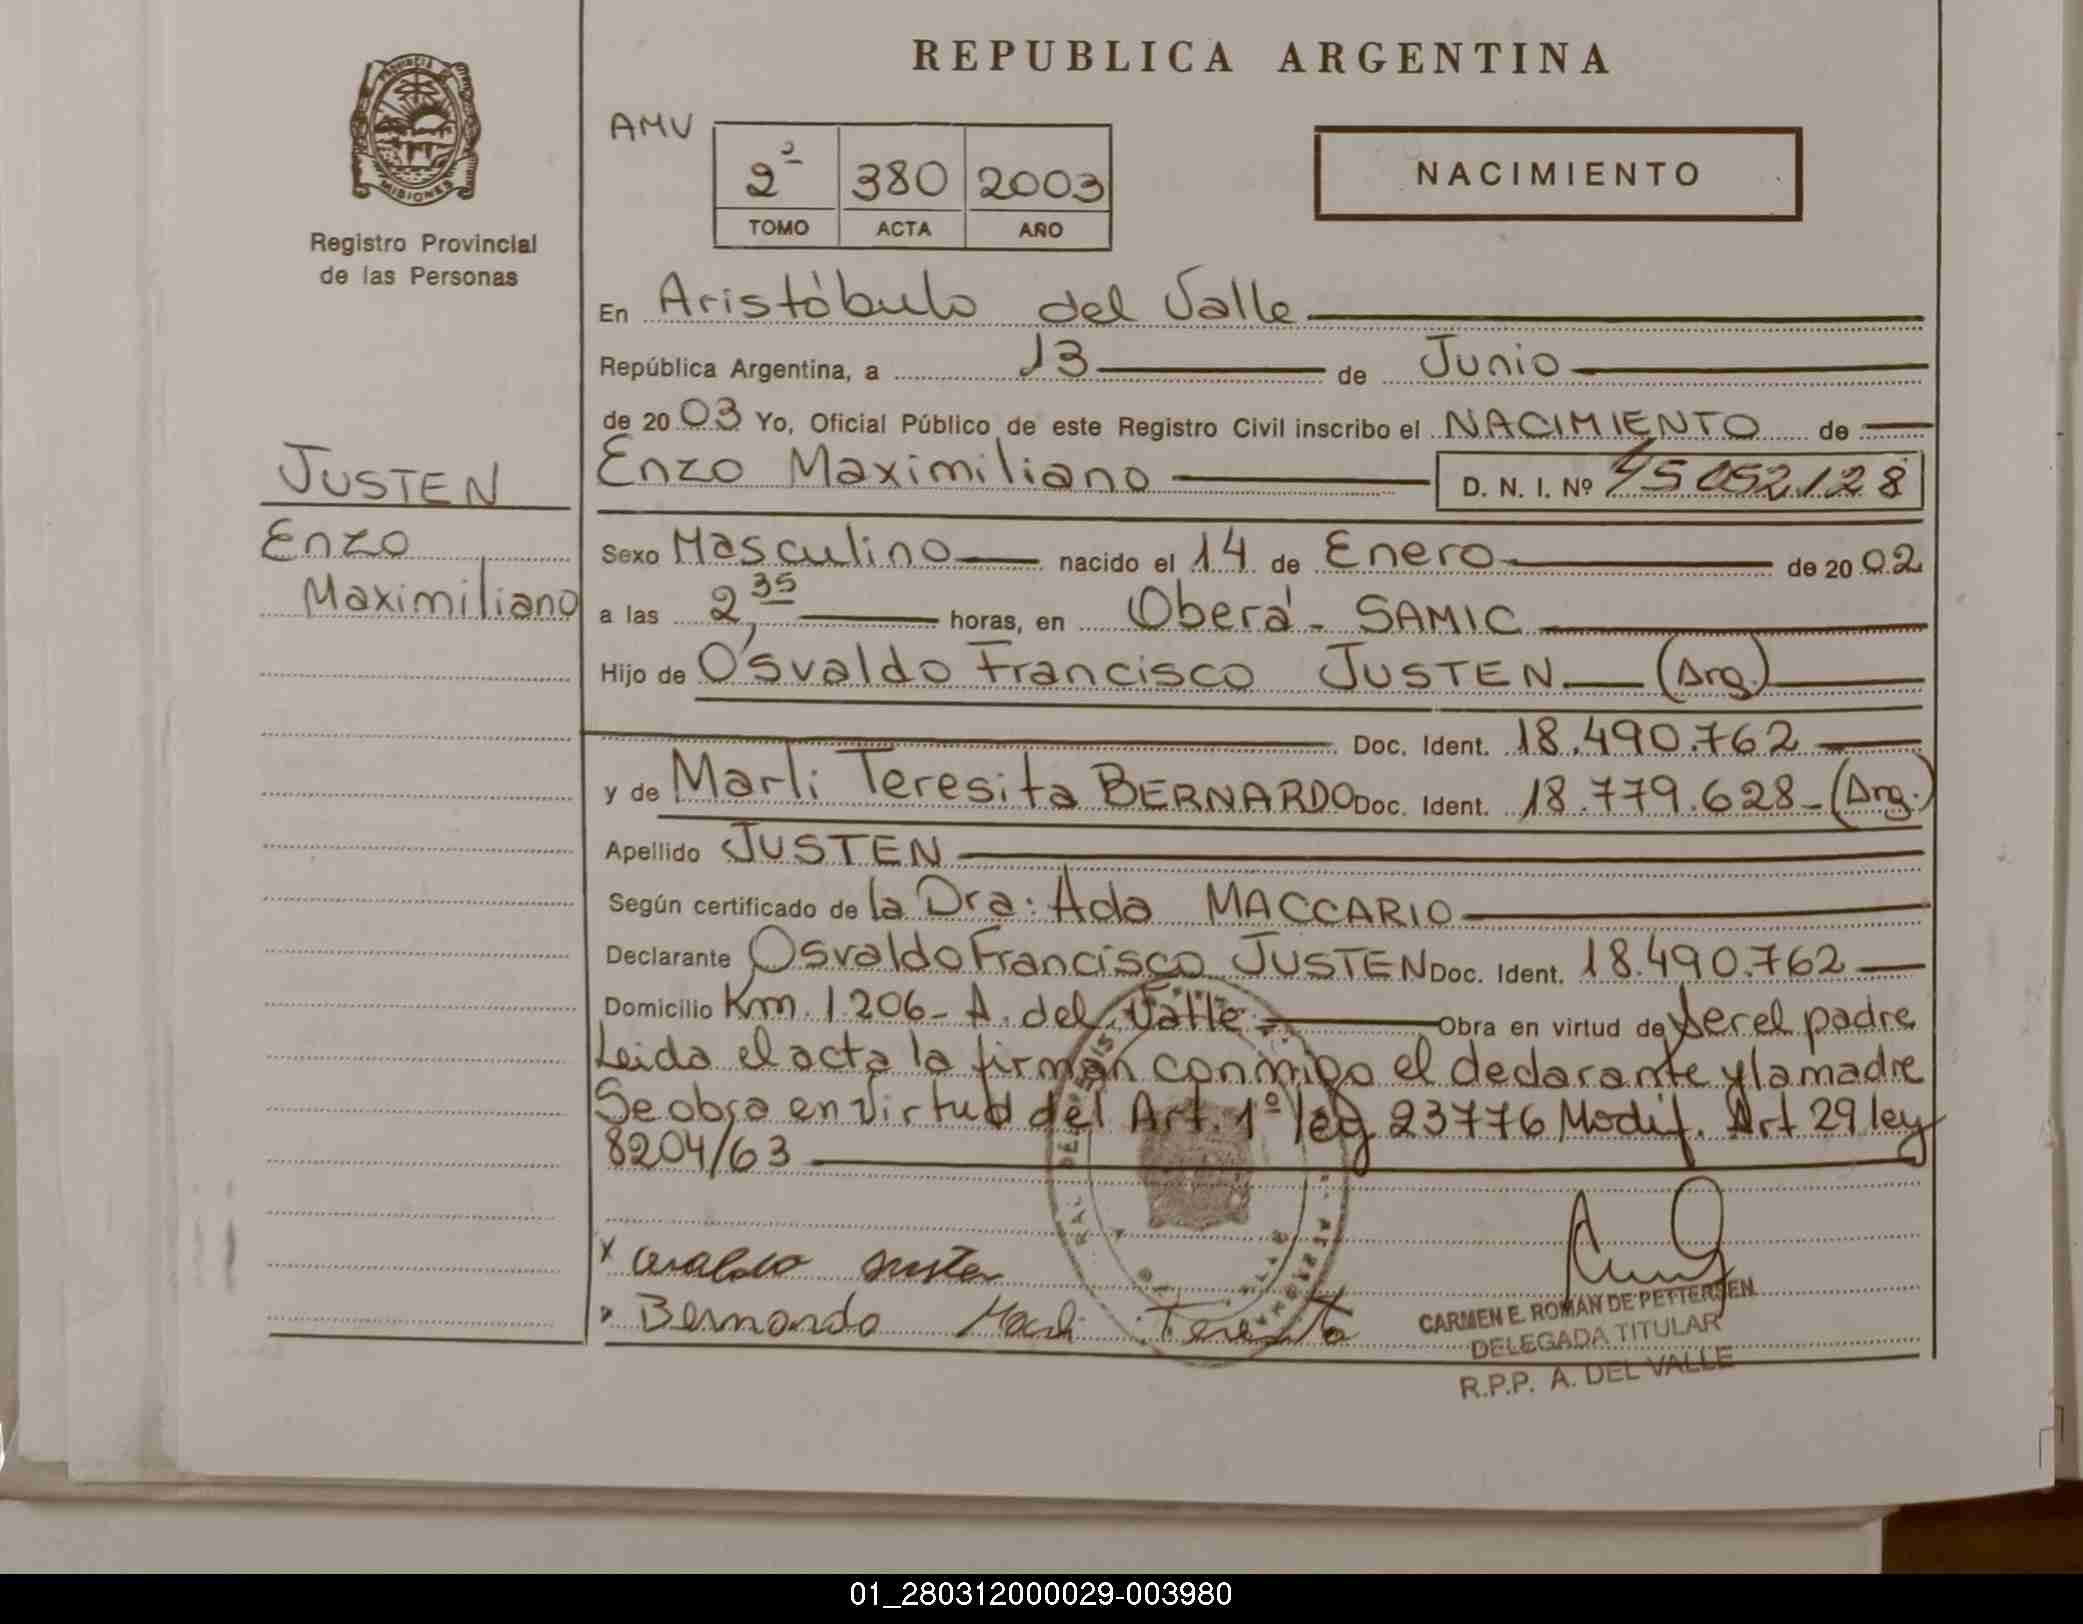 REPUBLICA ARGENTINA
PROVINCIA DE
MISIONES
Registro Provincial
de las Personas
AMV
2º 380 2003
TOMO ACTA AÑO
NACIMIENTO
JUSTEN
Enzo
Maximiliano
En Aristóbulo del Valle
República Argentina, a 13 de Junio
de 2003 Yo, Oficial Público de este Registro Civil inscribo el NACIMIENTO de
Enzo Maximiliano D. N. I. Nº 45052128
Sexo Masculino nacido el 14 de Enero de 2002
a las 2,35 horas, en Oberá - SAMIC
Hijo de Osvaldo Francisco JUSTEN (Arg.)
Doc. Ident. 18.490.762
y de Marli Teresita BERNARDO Doc. Ident. 18.779.628 - (Arg.)
Apellido JUSTEN
Según certificado de la Dra: Ada MACCARIO
Declarante Osvaldo Francisco JUSTEN Doc. Ident. 18.490.762
Domicilio Km. 1.206 - A. del Valle Obra en virtud de ser el padre
Leida el acta la firman conmigo el declarante y la madre
Se obra en virtud del Art. 1º ley 23776 Modif. Art 29 ley
8204/63
x Osvaldo Justen
Bernardo Marli Teresita
CARMEN E. ROMAN DE PETTERSEN
DELEGADA TITULAR
R.P.P. A. DEL VALLE
01_280312000029-003980